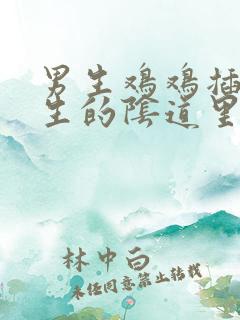 男生鸡鸡插
生的陰道里
林中白
未经同意禁止转载